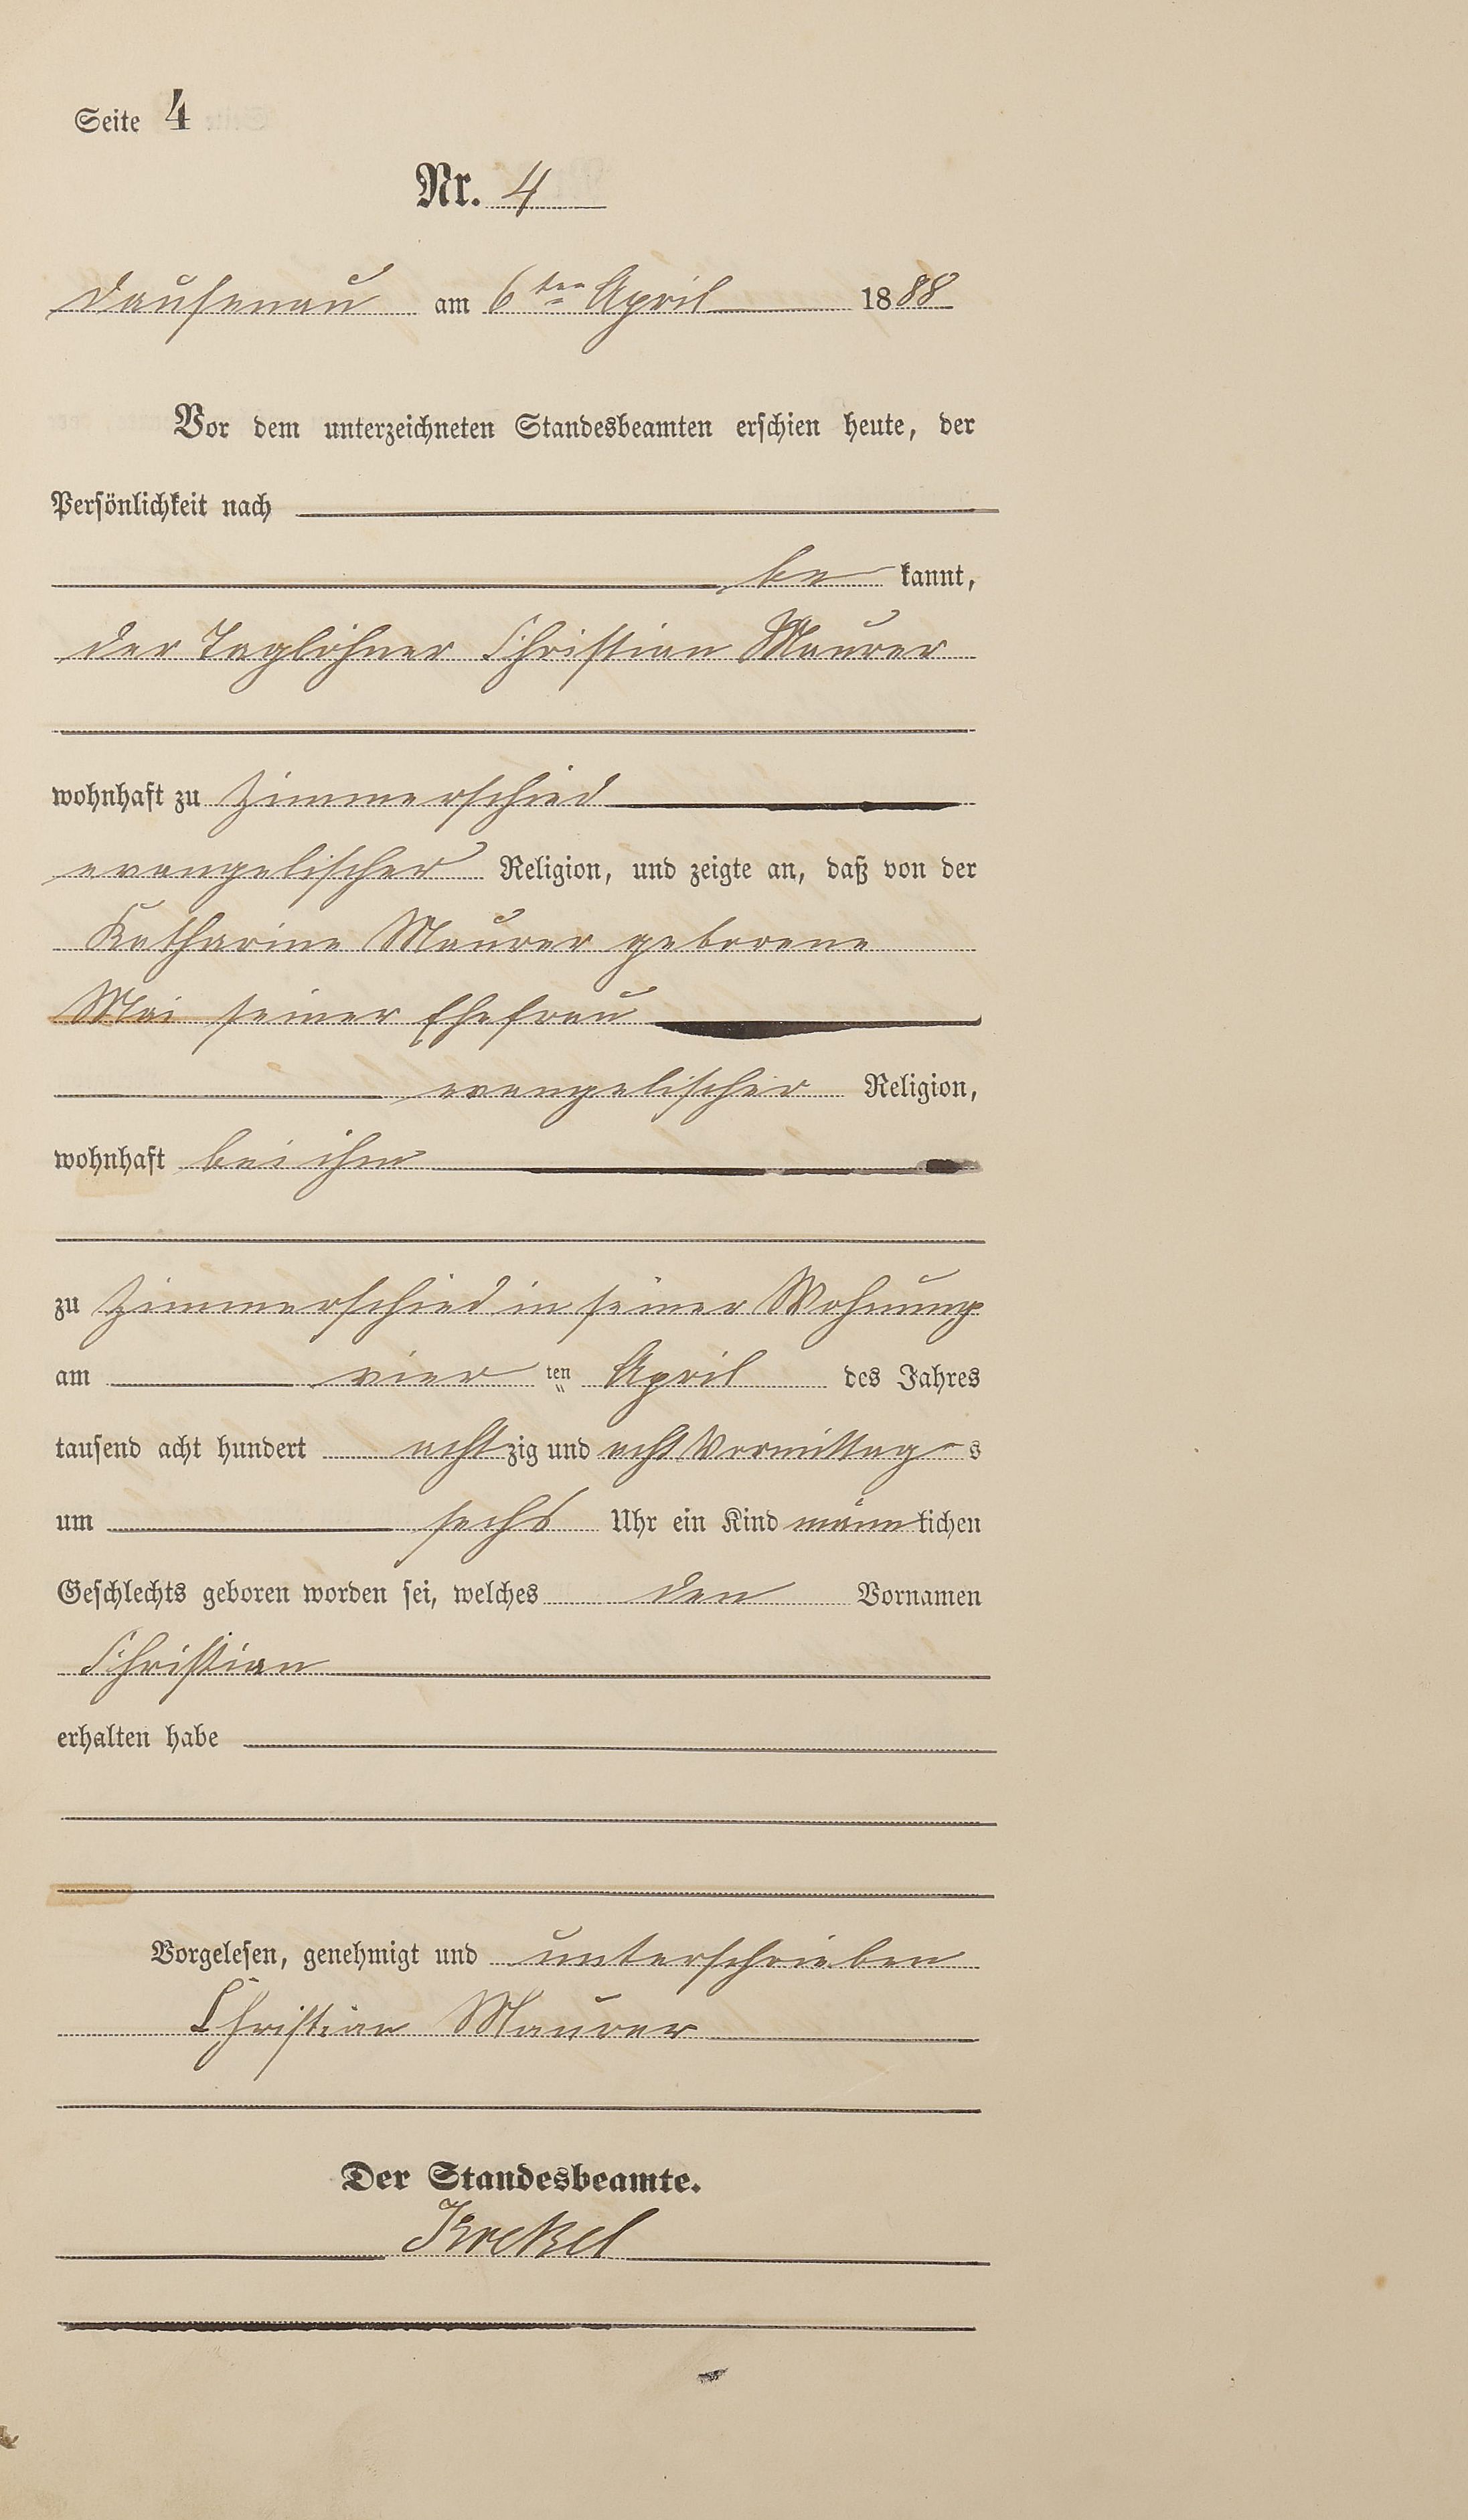 Seite 4
Nr. 4
Dausenau am 6ten April 1888
Vor dem unterzeichneten Standesbeamten erschien heute, der
Persönlichkeit nach
be kannt,
der Taglöhner Christian Maurer
wohnhaft zu Zimmerschied
evangelischer Religion, und zeigte an, daß von der
Katharine Maurer geborene
Mai seiner Ehefrau
evangelischer Religion,
wohnhaft bei ihm
zu Zimmerschied in seiner Wohnung
am vier ten April des Jahres
tausend acht hundert achtzig und acht Vormittag s
um sechs Uhr ein Kind männlichen
Geschlechts geboren worden sei, welches den Vornamen
Christian
erhalten habe
Vorgelesen, genehmigt und unterschrieben
Christian Maurer
Der Standesbeamte.
Krekel